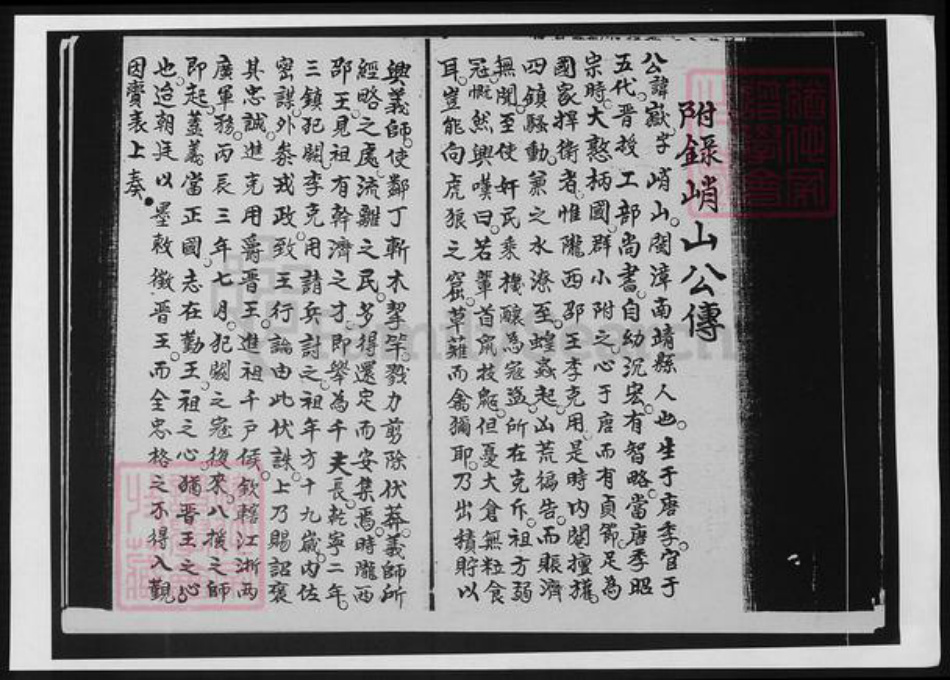 附錄峭山公傳
公諱嶽字峭山。閩漳南靖縣人也。生于唐季。官于
五代。晋授工部尚書。自幼沉宏。有智略。當唐季昭
宗時。大憝柄國。群小附之。心于唐而有貞節。足為
國家捍衛者。惟隴西邵王李克用。是時內閣擅權。
四鎮騷動。兼之水潦至。蝗蟊起。凶荒徧告。而賬濟
無聞。至使奸民乘機釀為寇盜。所在克斥。祖方弱
冠。慨然興嘆曰。若輩首鼠技窮。但憂大倉無粒食
耳。豈能向虎狼之窟。草薙而禽獮耶。乃出積貯以
興義師。使鄰丁斬木挈竿。戮力剪除伏莽。義師所
經略之處。流離之民。多得還定而安集焉。時隴西
邵王見祖有幹濟之才。即舉為千夫長。乾寧二年。
三鎮犯闕。李克用請兵討之。祖年方十九歲。內佐
密謀。外叅戎政。致王行諭由此伏誅。上乃賜詔褒
其忠誠。進克用爵晋王。進祖千户候。欽轄江浙两
廣軍務。丙辰三年七月。犯闕之寇復來。八援之師
即起。蓋義當正國。志在勤王。祖之心。猶晋王之心
也。迨朝廷以墨敕徵晋王。而全忠格之不得入覲
因賫表上奏。